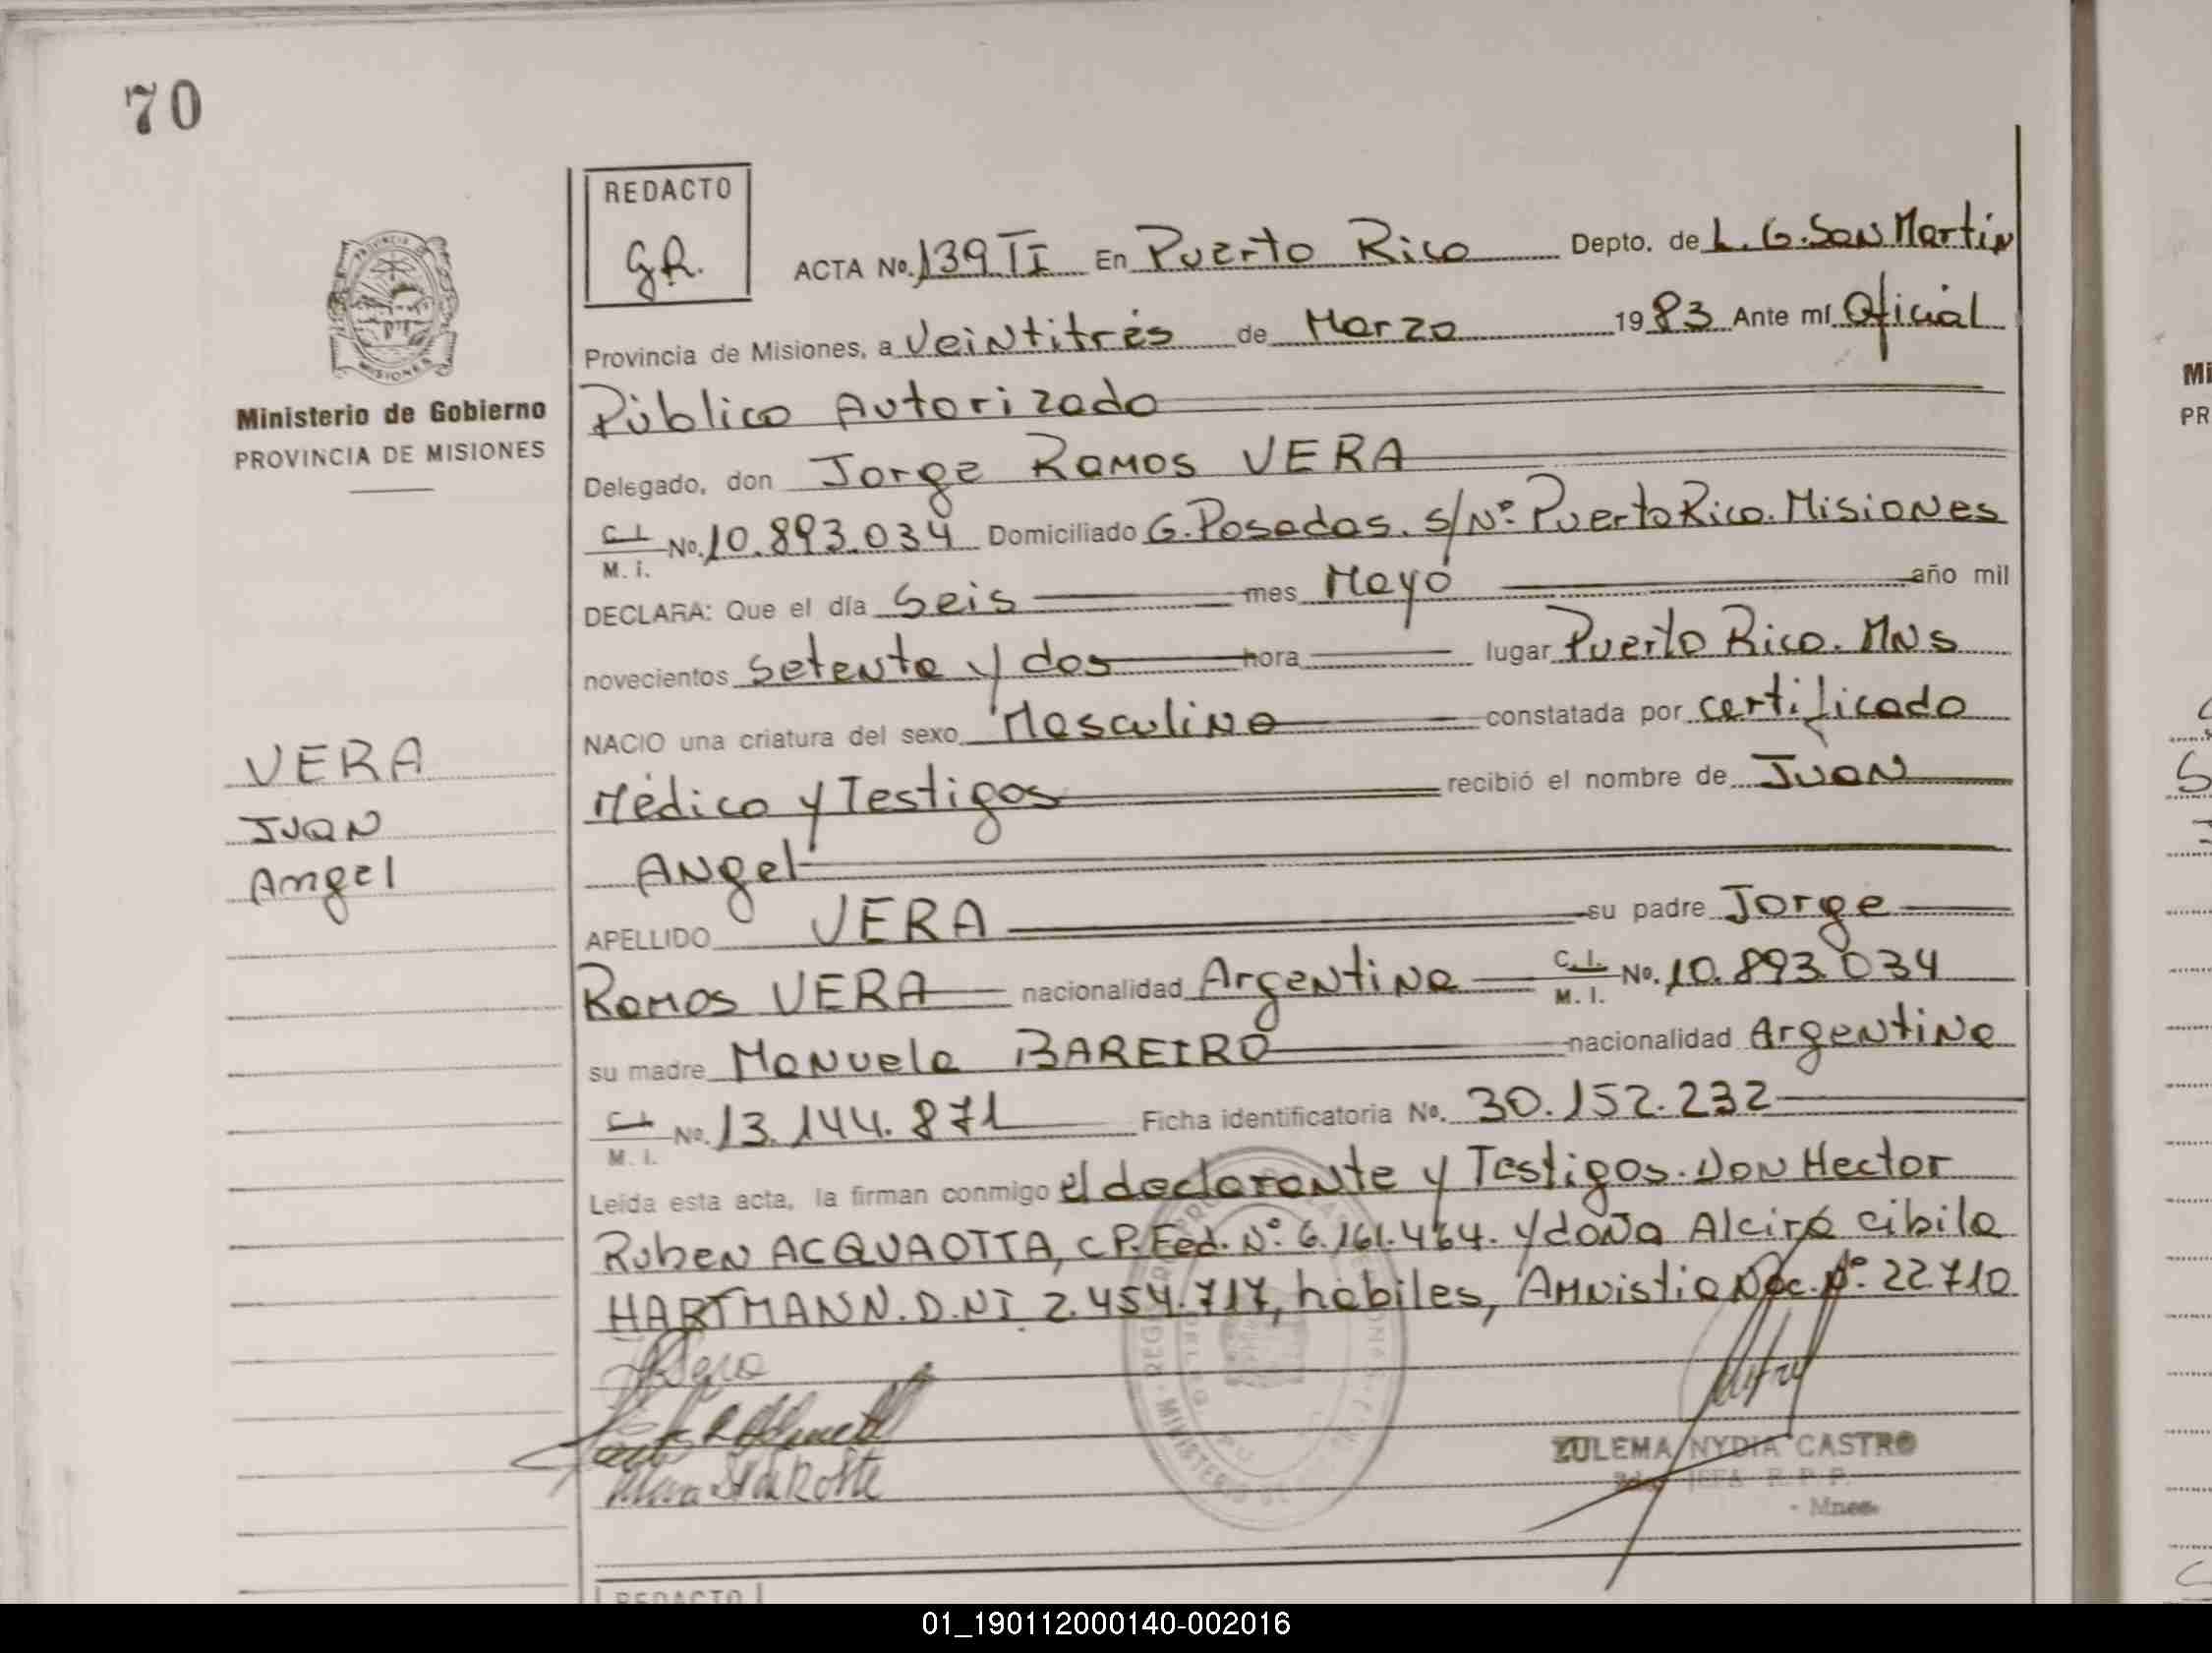 70
REDACTO
G.R.
ACTA No. 139 TI En Puerto Rico Depto. de L. G. San Martin
Provincia de Misiones, a Veintitrés de Marzo 1983 Ante mí Oficial
Público Autorizado
Ministerio de Gobierno
PROVINCIA DE MISIONES
Delegado, don Jorge Ramos VERA
C.I. M.I. No. 10.893.034 Domiciliado G. Posadas. S/Nº. Puerto Rico. Misiones
DECLARA: Que el día Seis mes Mayo año mil
novecientos setenta y dos hora lugar Puerto Rico. MNS
NACIO una criatura del sexo Masculino constatada por certificado
Médico y Testigos recibió el nombre de Juan
Angel
VERA
Juan
Angel
APELLIDO VERA su padre Jorge
Ramos VERA nacionalidad Argentina C.I. M.I. No. 10.893.034
su madre Manuela BAREIRO nacionalidad Argentina
C.I. M.I. No. 13.144.871 Ficha identificatoria No. 30.152.232
Leída esta acta, la firman conmigo el declarante y Testigos. Don Hector
Ruben ACQUAOTTA, C.P. Fed. Nº. 6.161.464. y doña Alcira cibila
HARTMANN. D.NI 2.454.717, hábiles, Amnistia Dec. Nº. 22.710
ZULEMA NYDIA CASTRO
JEFA R. P. P.
Mnes.
REDACTO
Mi
PR
01_190112000140-002016